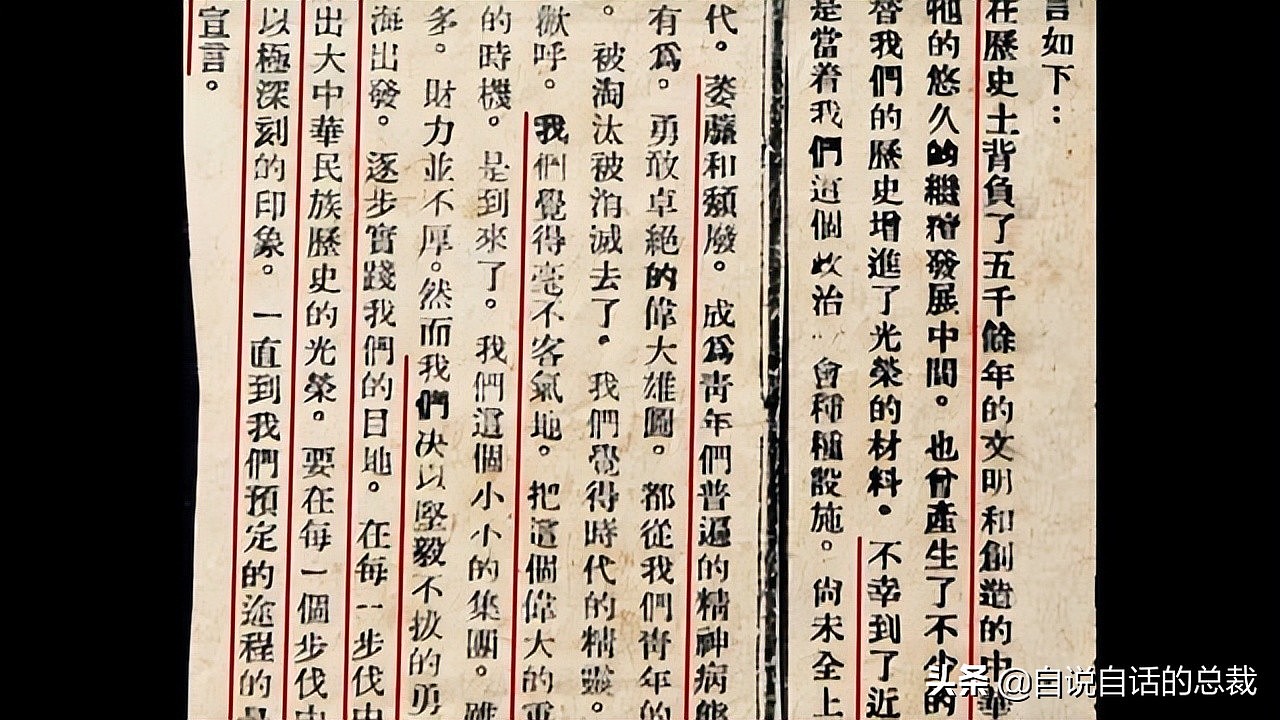 言如下：
在歷史上背負了五千餘年的文明和創造的中華
的悠久的 發展中間。也曾產生了不少的
替我們的歷史增進了光榮的材料。不幸到了近
是當着我們這個政治 會種種設施。尚未全上
代。萎靡和頹廢。成爲靑年們普遍的精神病態
有爲。勇敢卓絕的偉大雄圖。都從我們靑年的
。被淘汰被泊滅去了。我們覺得時代的精靈。
歡呼。我們覺得毫不客氣地。把這個偉大的重
的時機。是到來了。我們這個小小的集團。雖
多。財力並不厚。然而我們決以堅毅不拔的勇
海出發。逐步實踐我們的目地。在每一步伐中
出大中華民族歷史的光榮。要在每一個步伐中
以極深刻的印象。一直到我們預定的途程的
宣言。
头条 @自说自话的总裁